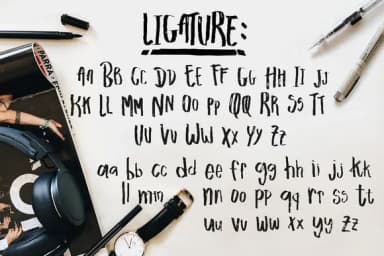 LIGATURE:
AA BB CC DD EE FF GG HH II JJ
KK LL MM NN OO PP QQ RR SS TT
UU VV WW XX YY ZZ
aa bb cc dd ee ff gg hh ii jj kk
ll mm nn oo pp qq rr ss tt
uu vv ww xx yy zz
PARRA